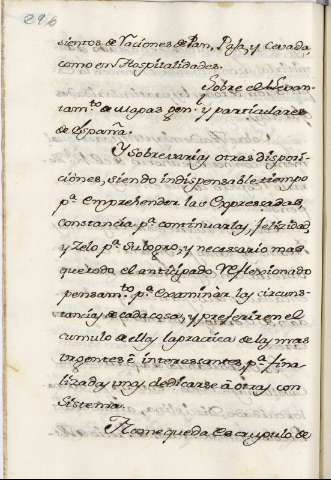 296
cientos de Raciones de Pan, Paja, y Cevada,
como en Hospitalidades.
Sobre el Levan-
tam.to de Mapas gen.l y particulares
de España.
Y sobre varias otras disposi-
ciones, siendo indispensable tiempo
p.a emprehender las expressadas,
constancia p.a continuarlas, felicidad,
y zelo p.a su logro, y necesario mas
que todo el anticipado reflexionado
pensam.to p.a examinar las circuns-
tancias de cada cosa, y preferir en el
cumulo de ellas la practica de las mas
urgentes è interesantes, p.a fina-
lizadas unas dedicarse à otras con
Sistema.
No me queda escrupulo de